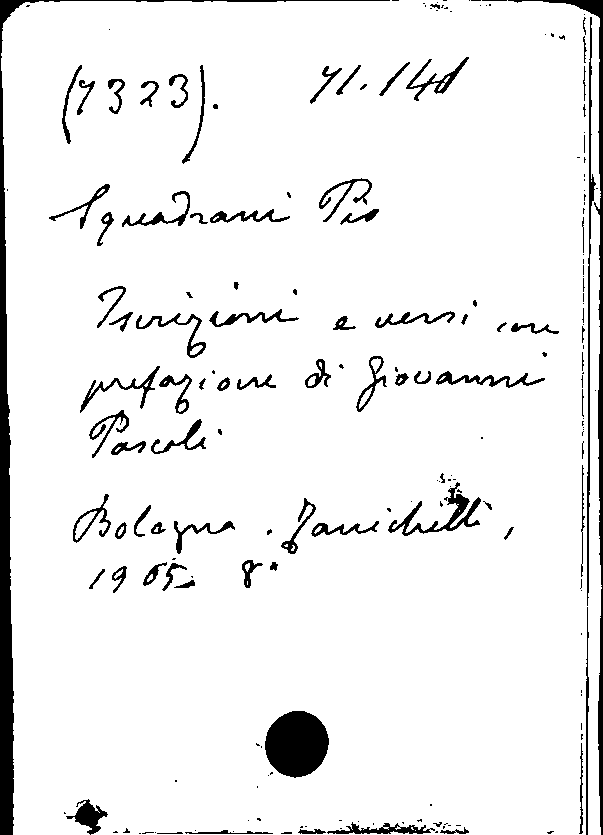 (7323). 71.141
Squadrani Pio
Iscrizioni e versi con
prefazione di Giovanni
Pascoli
Bologna. Zanichelli,
1905 8°